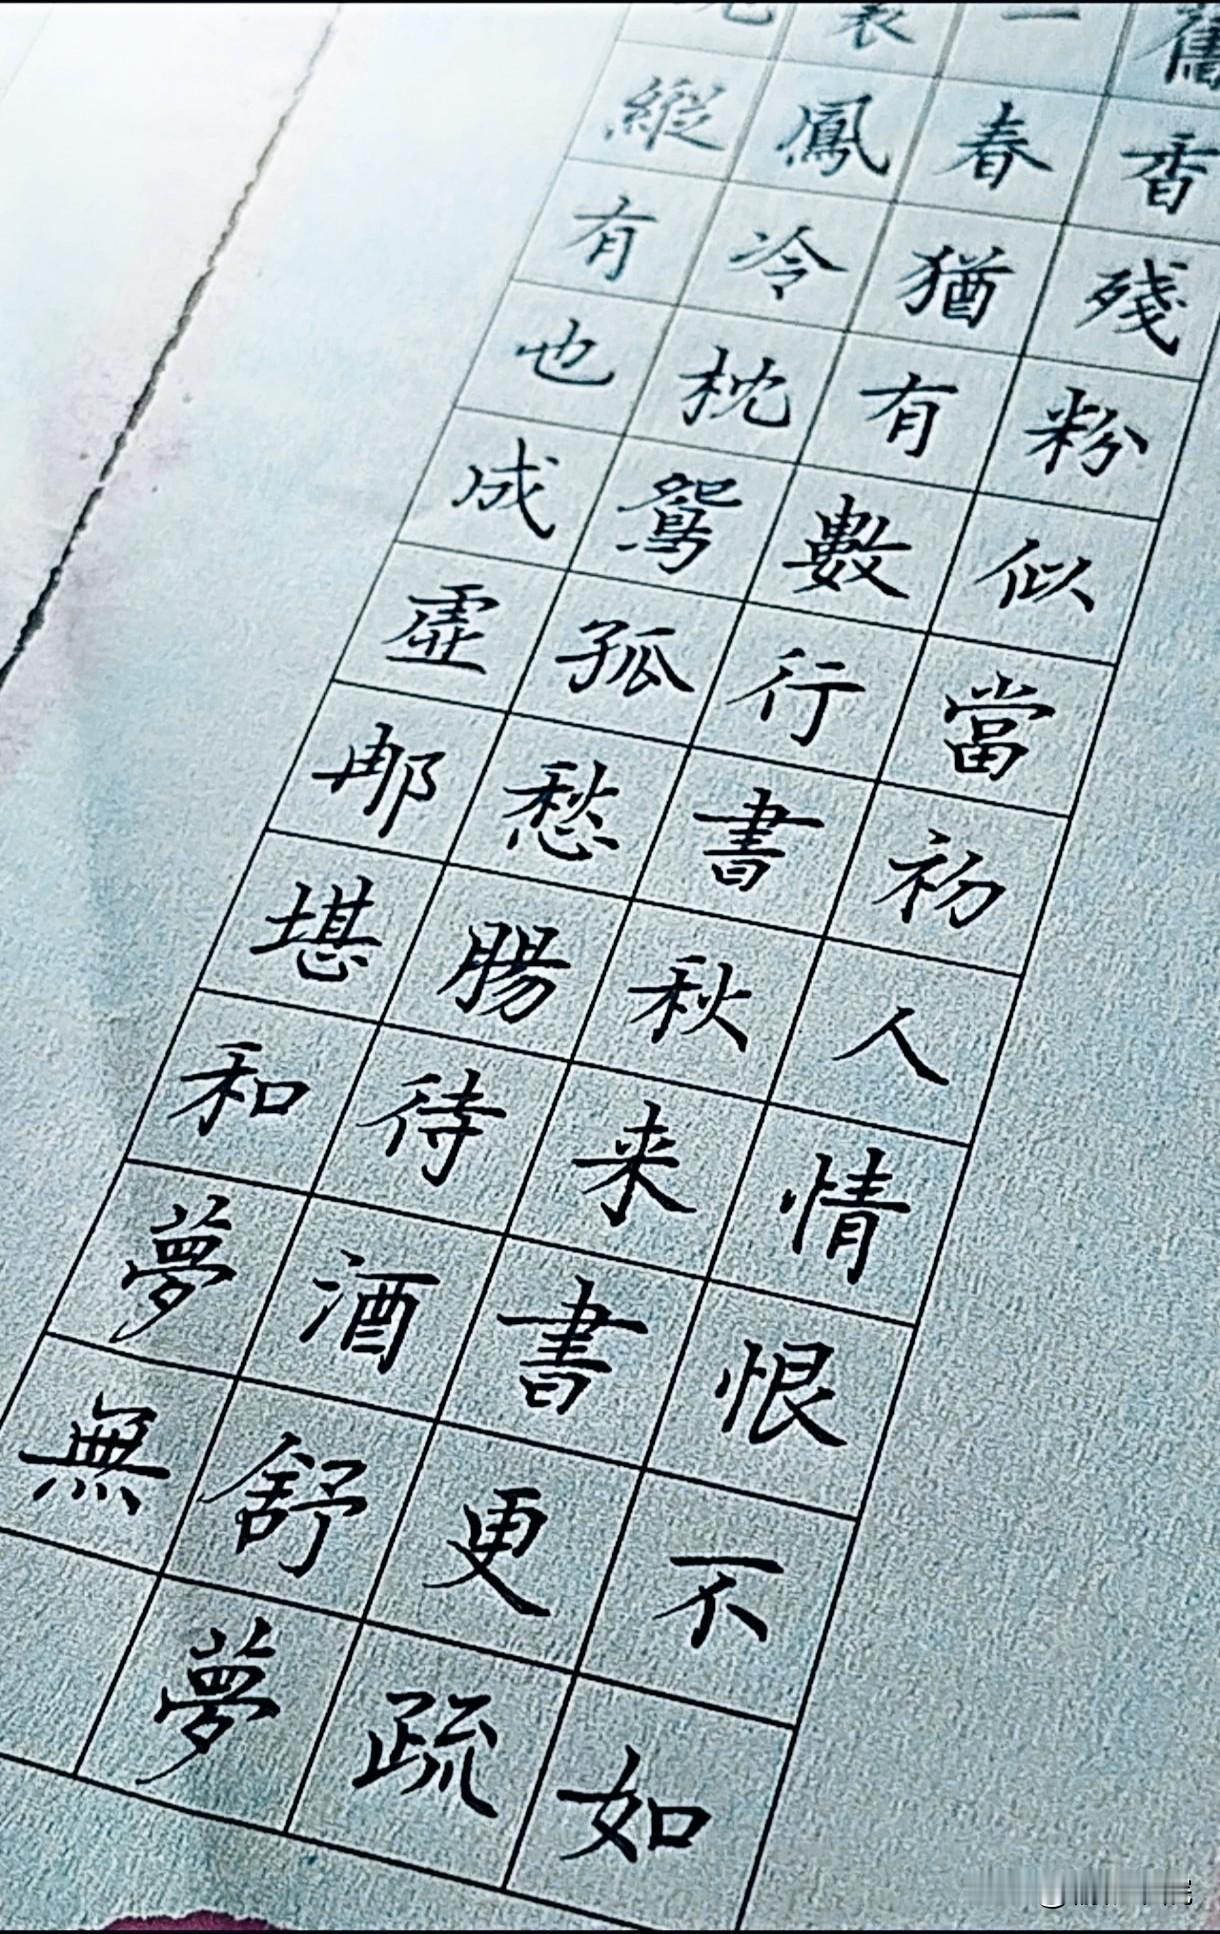 舊香殘粉似當初人情恨不如
一春猶有數行書秋来書更疏
衾鳳冷枕鴛孤愁腸待酒舒夢
魂縱有也成虛那堪和夢無